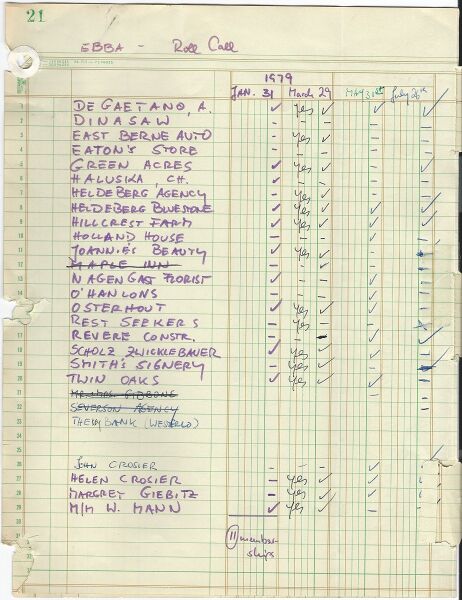 21
EBBA - Roll Call
1979
JAN. 31 March 29 MAY 31st July 26th
1 DE GAETANO, A. ✓ yes ✓ ✓ ✓
2 DINASAW - - - -
3 EAST BERNE AUTO - yes ✓ -
4 EATON'S STORE - - - -
5 GREEN ACRES ✓ yes ✓ ✓
6 HALUSKA, CH. - - -
7 HELDEBERG AGENCY - yes ✓
8 HELDEBERG BLUESTONE ✓ yes ✓ ✓ ✓
9 HILLCREST FARM ✓ yes ✓ ✓ ✓
10 HOLLAND HOUSE - - -
11 JOANNIES BEAUTY yes ✓
12 MAPLE INN
13 NAGENGAST FLORIST ✓
14 O'HANLONS - -
15 OSTERHOUT ✓ yes ✓
16 REST SEEKERS - yes
17 REVERE CONSTR. -
18 SCHOLZ ZWICKLEBAUER ✓ yes ✓
19 SMITH'S SIGNERY - yes ✓
20 TWIN OAKS ✓ yes ✓ ✓
21 GIBBONS
22 SEVERSON AGENCY
23 BANK (WESTERLO)
26 JOHN CROSIER - - ✓
27 HELEN CROSIER - yes ✓
28 MARGRET GIEBITZ - yes ✓
29 M/M W. MANN ✓ yes ✓
11 member-
ships